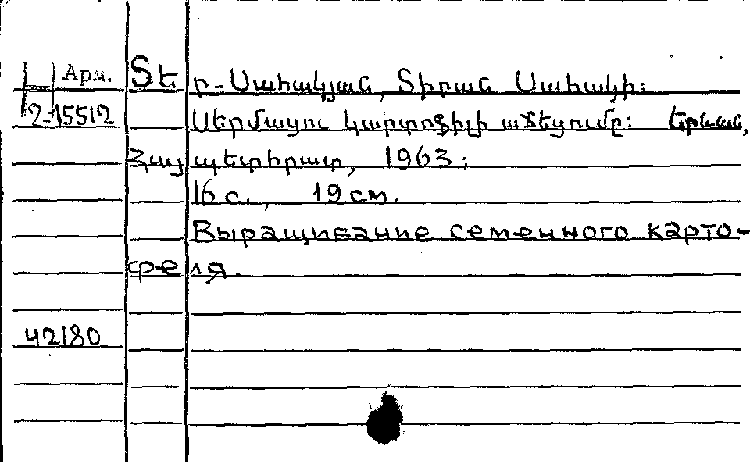 Арм.
2-15512
Տեր-Սահակյան, Տիրան Սահակի:
Սերմացու կարտոֆիլի աճեցումը: Երևան,
Հայպետհրատ, 1963:
16 с., 19 см.
Выращивание семенного карто-
феля.
42180